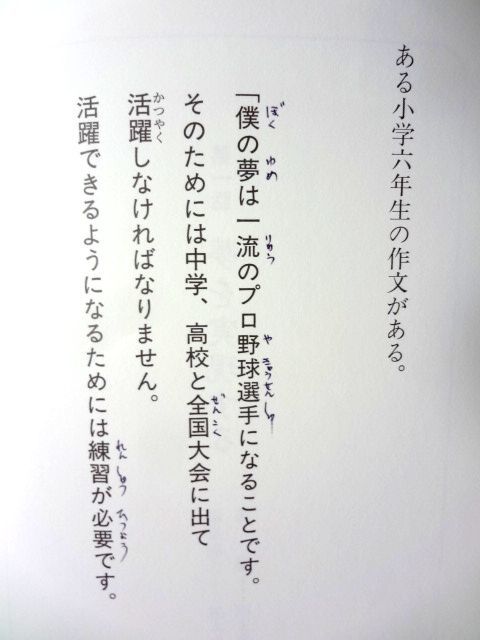 ある小学六年生の作文がある。
「僕の夢は一流のプロ野球選手になることです。
そのためには中学、高校と全国大会に出て
活躍しなければなりません。
活躍できるようになるためには練習が必要です。
ぼく
ゆめ
りゅう
や
きゅうせんしゅ
ぜんこく
かつやく
れんしゅう
ひつよう